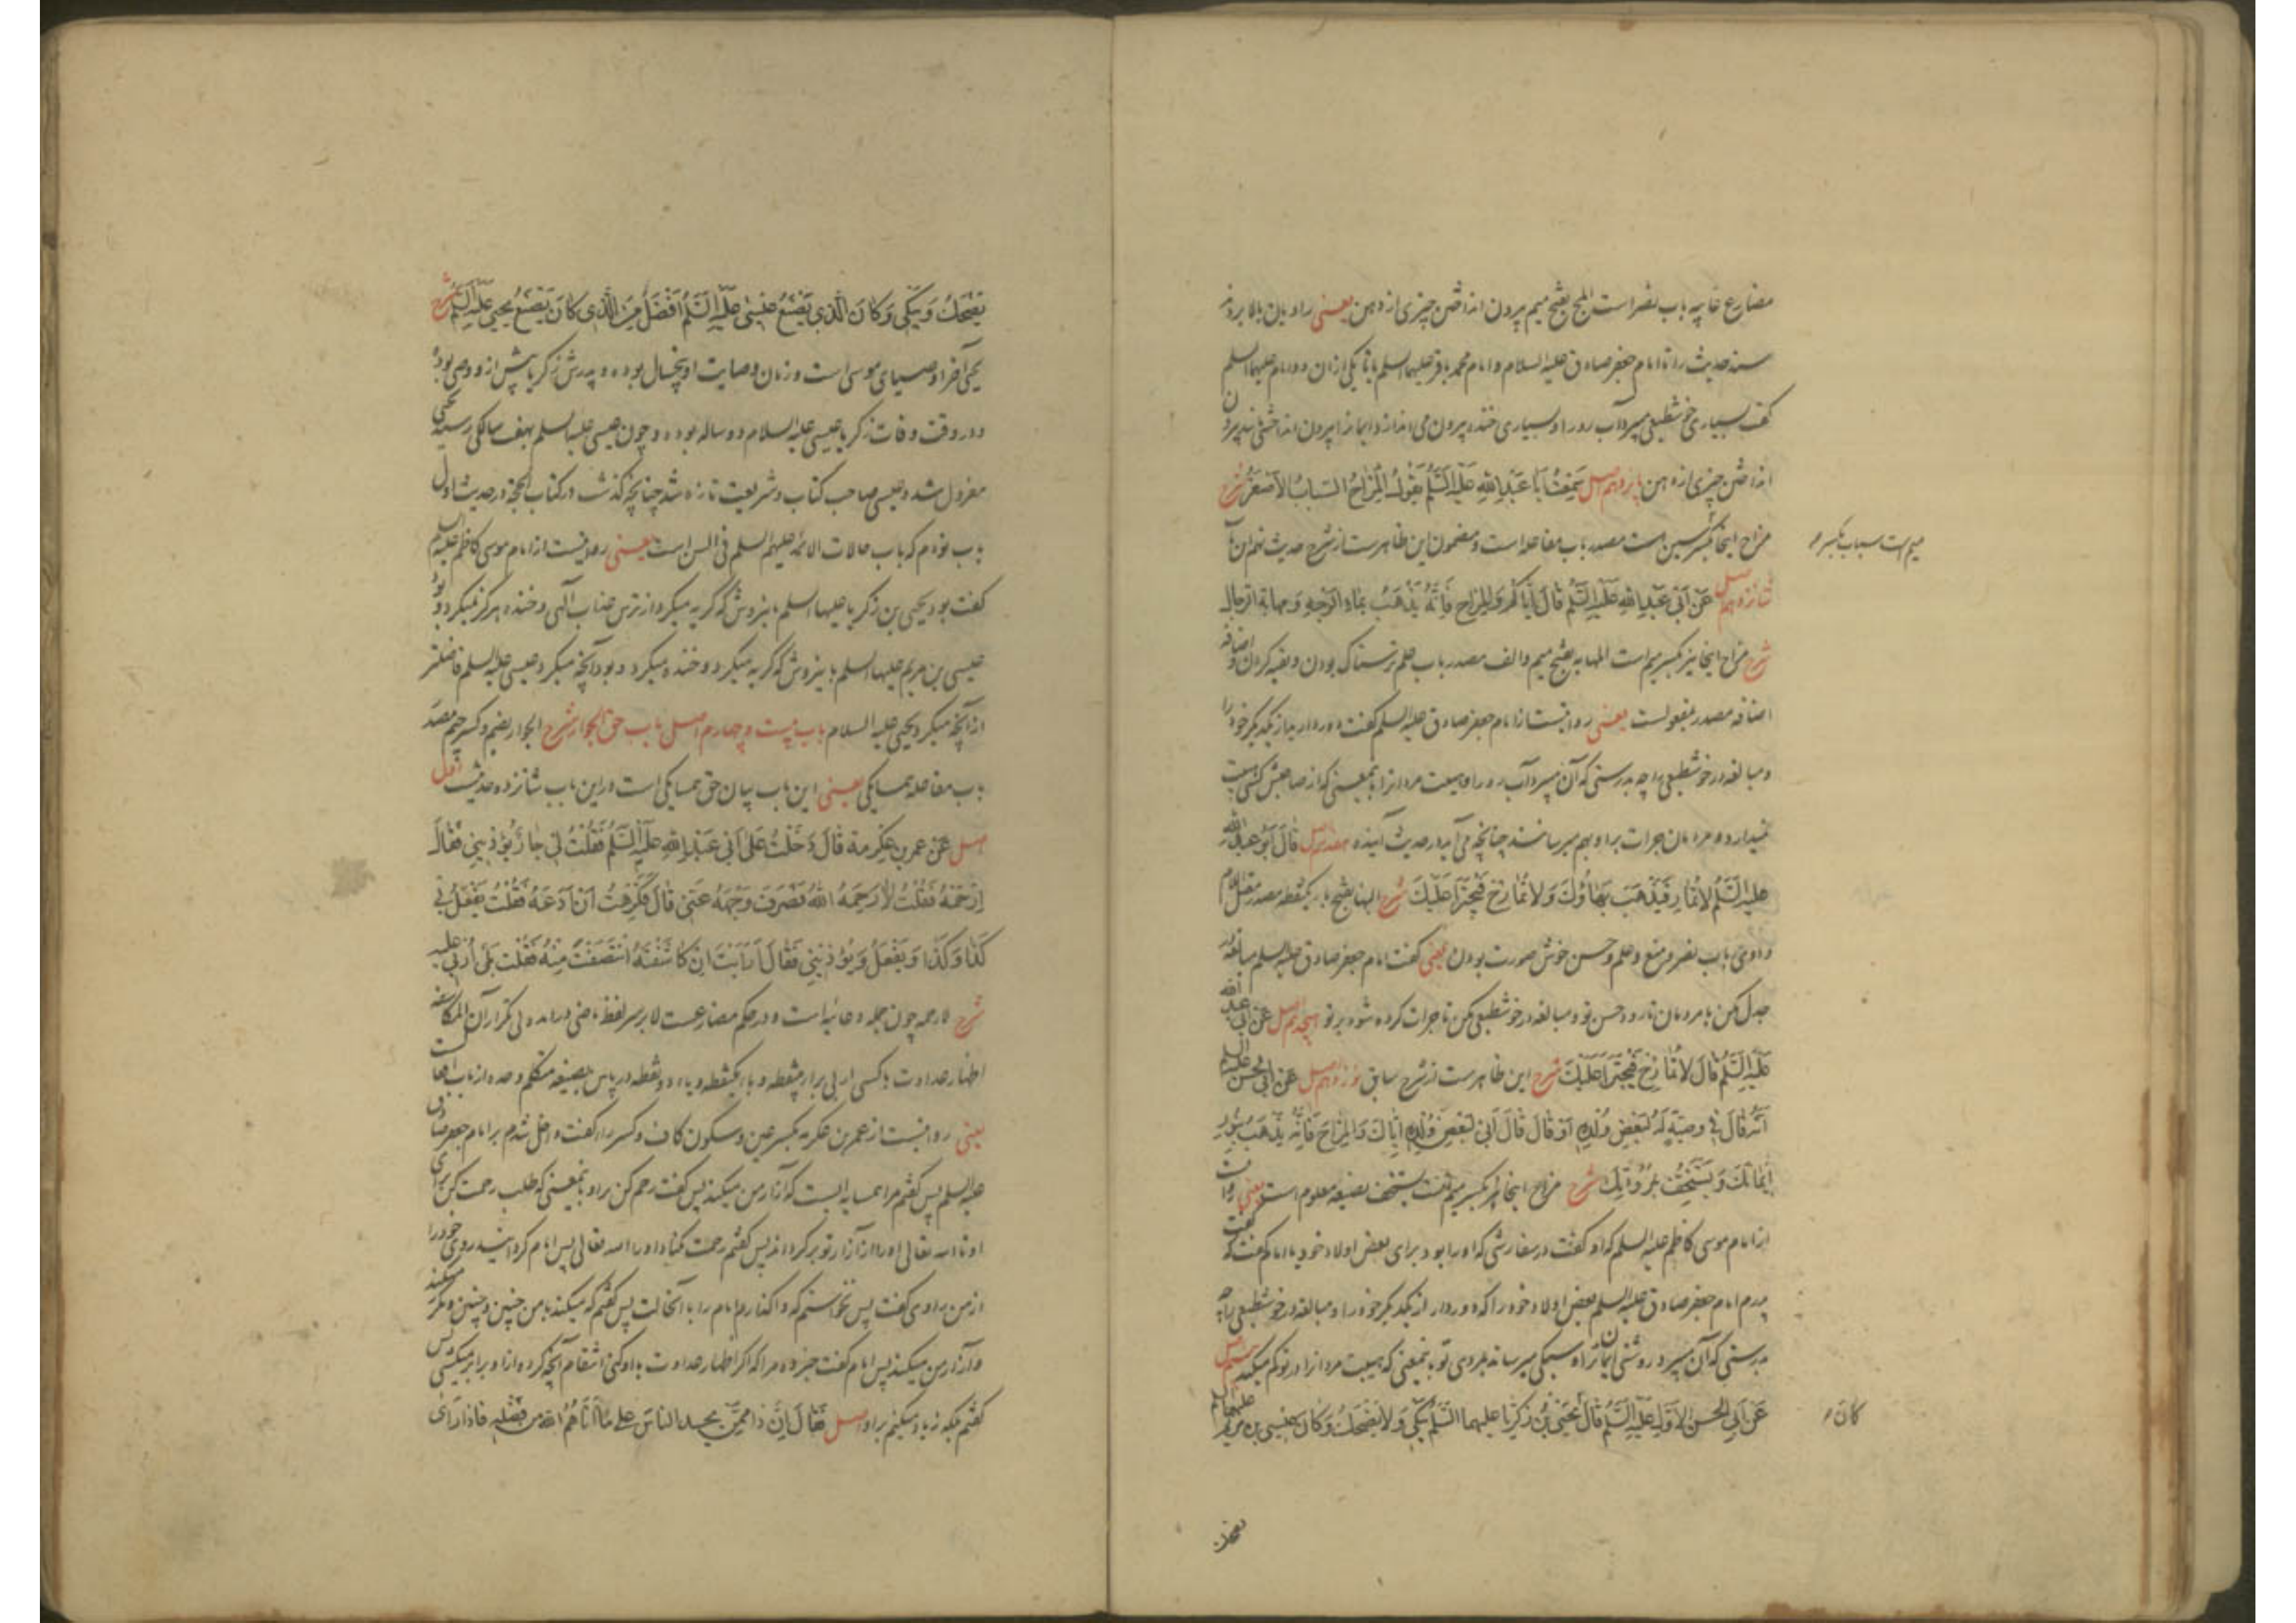 مضارع غایبه باب نصر است المج بفتح میم بیرون انداختن چیزی از دهن یعنی راویان بالا بردند
سند حدیث را تا امام جعفر صادق علیه السلام و امام محمد باقر علیهما السلم یا تا یکی ازان دو امام علیهما السلم
گفت بسیاری خوشطبعی میبرد آب رو را و بسیاری خنده بیرون می اندازد ایمان را بیرون انداختنی مانند بیرون
انداختن چیزی از دهن پانزدهم اصل سَمِعْتُ اَبَا عَبْدِاللهِ عَلَيْهِ السَّلَمُ يَقُولُ الْمِزَاحُ السِّبَابُ الْاَصْغَرُ شرح
مزاح اینجا بکسر سین است مصدر باب مفاعله است و مضمون این ظاهرست از شرح حدیث نهم این باب
میم است سباب بکسر
شانزدهم اصل عَنْ اَبِي عَبْدِاللهِ عَلَيْهِ السَّلَمُ قَالَ اِيَّاكُمْ وَالْمِزَاحَ فَاِنَّهُ يَذْهَبُ بِمَاءِ الْوَجْهِ وَمهابة الرجال
شرح مزاح اینجا نیز بکسر میم است المهابه بفتح میم و الف مصدر باب علم ترسناک بودن و بقیه کردن و اضافه
اضافه مصدر بمفعولست یعنی روایتست از امام جعفر صادق علیه السلم گفت دور دارید از یکدیگر خود را
و مبالغه در خوشطبعی را چه بدرستی که آن میبرد آب رو را و هیبت مردانرا باینمعنی که از صاحبش کسی هیبت
نمیدارد و مردمان جرات براو بهم میرسانند چنانچه می آید در حدیث آینده هفدهم اصل قَالَ اَبُو عَبْدِ الله
عليه السَّلَمُ لَا تُمَارِ فَيَذْهَبَ بَهَاؤُكَ وَلَا تُمَازِحْ فَيُجْتَرَأَ عَلَيْكَ شرح البها بفتح با یکنقطه مصدر معتل لام
واوی باب نصر و منع و علم و حسن خوش صورت بودن یعنی گفت امام جعفر صادق علیه السلم مبالغه در
جدل مکن با مردمان تا رود حسن تو و مبالغه در خوشطبعی مکن تا جرات کرده شود بر تو هیجدهم اصل عَنْ اَبِي عبد الله
عَلَيْهِ السَّلَمُ قَالَ لَا تُمَازِحْ فَيُجْتَرَأَ عَلَيْكَ شرح این ظاهرست از شرح سابق نوزدهم اصل عَنْ اَبِي الْحَسَنِ علیه السلم
اَنَّهُ قَالَ فِي وَصِيَّةٍ لَهُ لِبَعْضِ وُلْدِهِ اَوْ قَالَ قَالَ اَبِي لِبَعْضِ وُلْدِهِ اِيَّاكَ وَالْمِزَاحَ فَاِنَّهُ يَذْهَبُ بِنُورِ
اِيمَانِكَ وَيَسْتَخِفُّ بِمُرُوَّتِكَ شرح مزاح اینجا نیز بکسر میم است یستخف بصیغه معلوم است یعنی روایت
از امام موسی کاظم علیه السلم که او گفت در سفارشی که او را بود برای بعض اولاد خود یا امام گفت که گفت
پدرم امام جعفر صادق علیه السلم بعض اولاد خود را که دور دار از یکدیگر خود را و مبالغه در خوشطبعی را چه
بدرستی که آن میبرد روشنی ایمان ترا و سبکی میرساند بمردمی تو باینمعنی که هیبت مردانرا در تو کم میکند بیستم اصل
عَنْ اَبِي الْحَسَنِ الْاَوَّلِ عَلَيْهِ السَّلَمُ قَالَ يَحْيَى بْنُ زَكَرِيَّا عليهما السَّلَمُ يَبْكِي وَلَا يَضْحَكُ وَكَانَ عِيسَى بن مريم علیهما السلم
كان
يَضْحَكُ وَيَبْكِي وَكَانَ الَّذِي يَصْنَعُ عِيسَى عَلَيْهِ السَّلَمُ اَفْضَلَ مِنَ الَّذِي كَانَ يَصْنَعُ يَحْيَى عَلَيْهِ السَّلَمُ شرح
یحیی آخر اوصیای موسی است و زمان وصایت او پنجسال بوده و پدرش زکریا پیش از او وصی بوده
و در وقت وفات زکریا عیسی علیه السلام دو ساله بوده و چون عیسی علیه السلم بهفت سالگی رسیده یحیی
معزول شد و عیسی صاحب کتاب و شریعت تازه شد چنانچه گذشت در کتاب الحجة در حدیث اول
باب نودم که باب حالات الائمه علیهم السلم فی السن است یعنی روایتست از امام موسی کاظم علیه السلم
گفت بود یحیی بن زکریا علیهما السلم باینروش که گریه میکرد از ترس عذاب الهی و خنده هرگز نمیکرد و بود
عیسی بن مریم علیهما السلم باینروش که گریه میکرد و خنده میکرد و بود آنچه میکرد عیسی علیه السلم فاضلتر
از آنچه میکرد یحیی علیه السلام باب بیست و چهارم اصل باب حق الجوار شرح الجوار بضم و کسر جیم مصدر
باب مفاعله همسایگی یعنی این باب بیان حق همسایگی است در این باب شانزده حدیثست اول
اصل عَنْ عمر بن عِكْرِمَةَ قَالَ دَخَلْتُ عَلَى اَبِي عَبْدِاللهِ عَلَيْهِ السَّلَمُ فَقُلْتُ لِي جَارٌ يُؤْذِينِي فَقَالَ
اِرْحَمْهُ فَقُلْتُ لَا رَحِمَهُ اللهُ فَصَرَفَ وَجْهَهُ عَنِّي قَالَ فَكَرِهْتُ اَنْ اَدَعَهُ فَقُلْتُ يَفْعَلُ بِي
كَذَا وَكَذَا وَيَفْعَلُ وَيُؤْذِينِي فَقَالَ اَرَاَيْتَ اِنْ كَاشَفْتَهُ انْتَصَفْتَ مِنْهُ فَقُلْتُ بَلَى اُرْبِي عليه
شرح لا رحمه چون جمله دعائیه است و در حکم مضارعست لا بر سر لفظ ماضی درآمده بی تکرار آن المکاشفه
اظهار عداوت با کسی اربی برا بی نقطه و با یکنقطه و یاء دو نقطه در پایین بصیغه متکلم وحده از باب افعال است
یعنی روایتست از عمر بن عکرمه بکسر عین و سکون کاف و کسر را گفت داخل شدم بر امام جعفر صادق
علیه السلم پس گفتم مرا همسایه ایست که آزار من میکند پس گفت رحم کن براو باینمعنی که طلب رحمت کن برای
او تا الله تعالی او را از آزار تو برگرداند پس گفتم رحمت مکناد او را الله تعالی پس امام گردانید روی خود را
از من راوی گفت پس نخواستم که واگذارم امام را با آنحالت پس گفتم که میکند بامن چنین و چنین و میکند
و آزار من میکند پس امام گفت خبر ده مرا که اگر اظهار عداوت با او کنی انتقام آنچه کرده از او برابر میکشی پس
گفتم بلکه زیاد میکنم براو اصل فَقَالَ اِنَّ ذَا مِمَّنْ يحسد الناسَ على مَا اٰتَاهُمُ اللهُ من فَضْلِهِ فاذا رَاَى